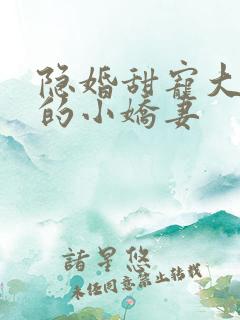 隐婚甜宠大
的小娇妻
諸星悠
未经同意禁止转载